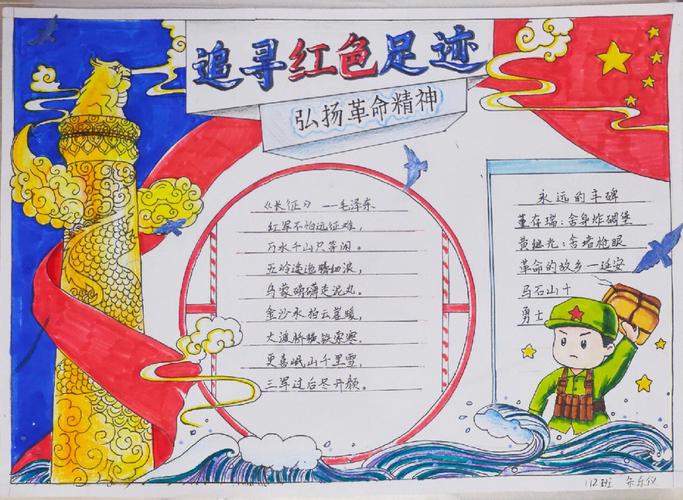 追寻红色足迹
弘扬革命精神
《长征》 —毛泽东
红军不怕远征难,
万水千山只等闲。
五岭逶迤腾细浪,
乌蒙磅礴走泥丸。
金沙水拍云崖暖,
大渡桥横铁索寒。
更喜岷山千里雪,
三军过后尽开颜。
永远的丰碑
董存瑞:舍身炸碉堡
黄继光:舍堵枪眼
革命的故乡—延安
马石山十
勇士
112班